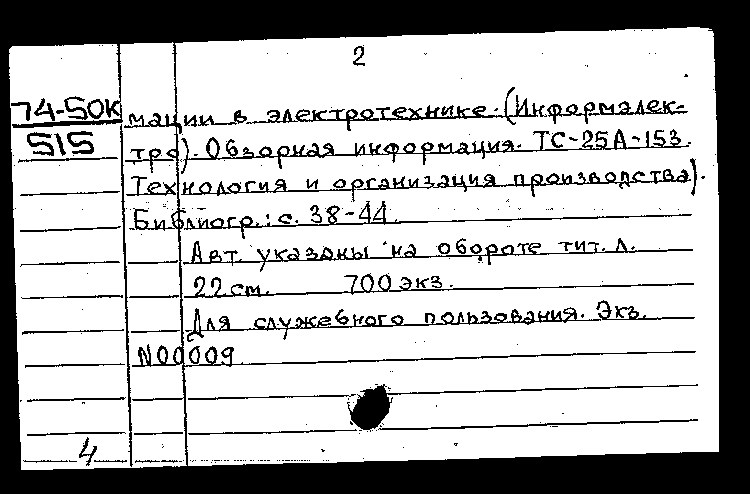 2
74-50К
515
мации в электротехнике. (Информэлек-
тро). Обзорная информация. ТС-25А-153.
Технология и организация производства).
Библиогр.: с. 38-44.
Авт. указаны на обороте тит. л.
22 см. 700 экз.
Для служебного пользования. Экз.
N00009.
4